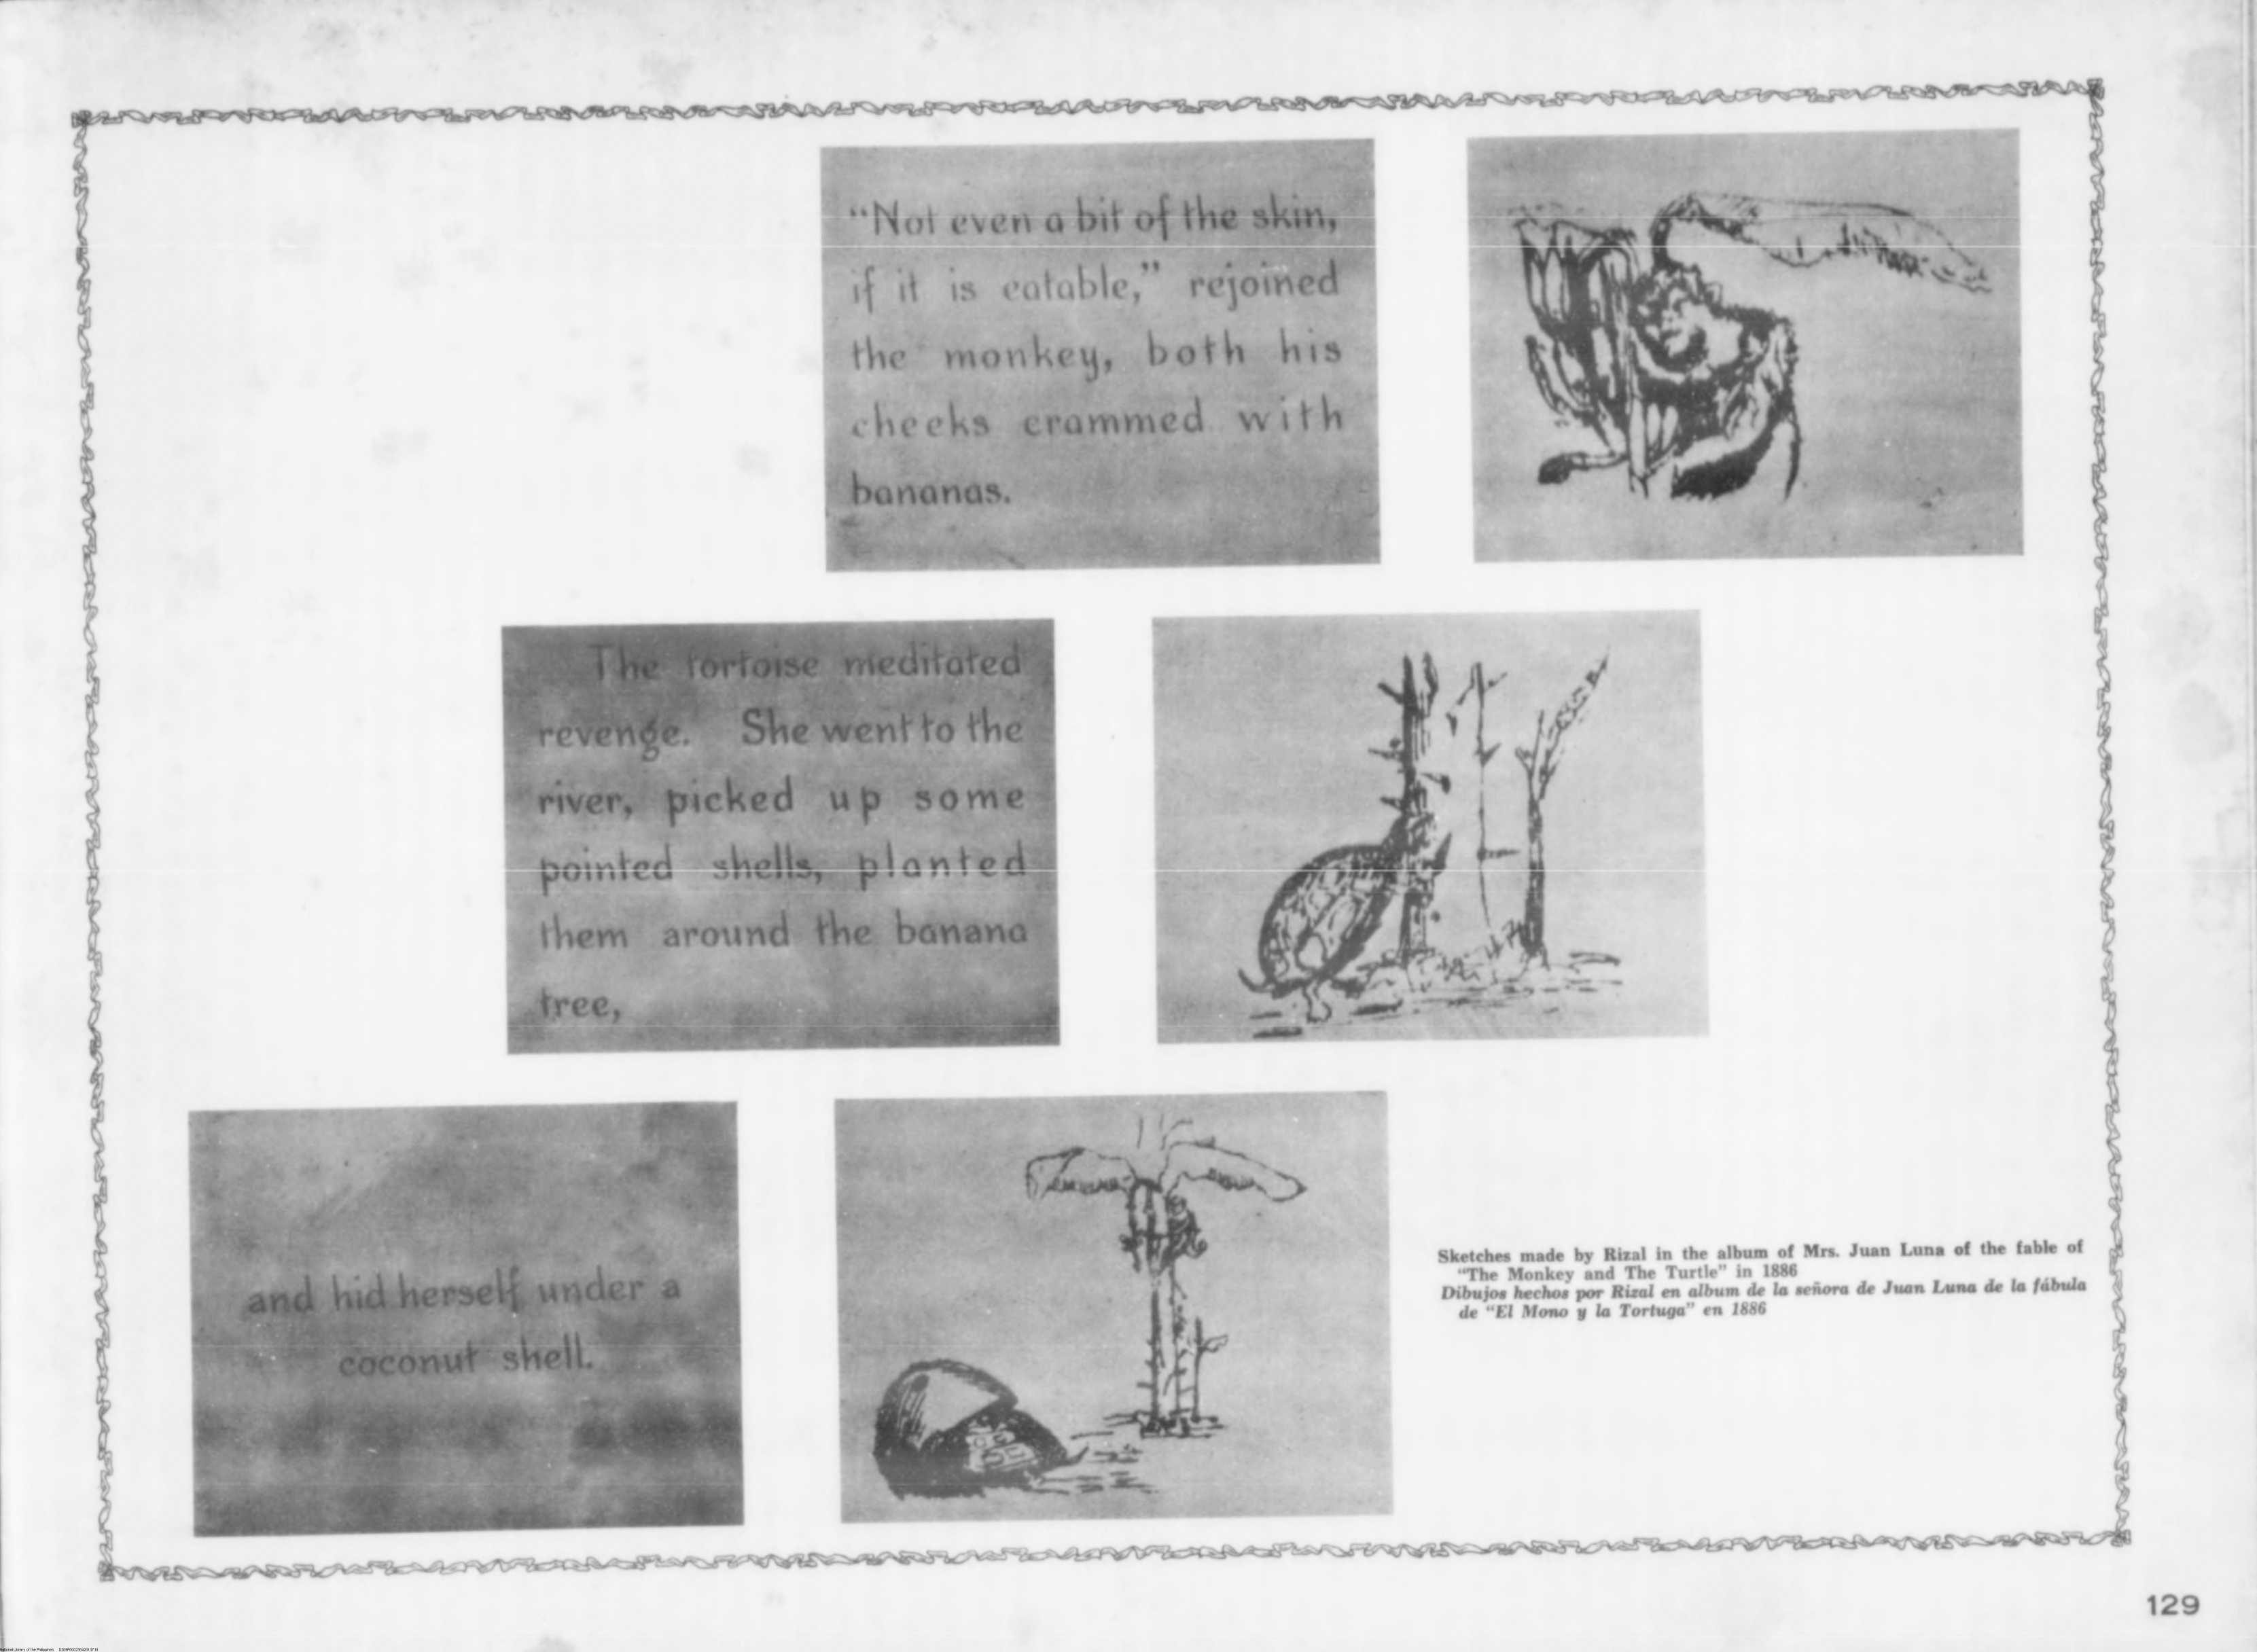 “Not even a bit of the skin,
if it is eatable,” rejoined
the monkey, both his
cheeks crammed with
bananas.
The tortoise meditated
revenge. She went to the
river, picked up some
pointed shells, planted
them around the banana
tree,
and hid herself under a
coconut shell.
Sketches made by Rizal in the album of Mrs. Juan Luna of the fable of
“The Monkey and The Turtle” in 1886
Dibujos hechos por Rizal en album de la señora de Juan Luna de la fábula
de “El Mono y la Tortuga” en 1886
129
National Library of the Philippines